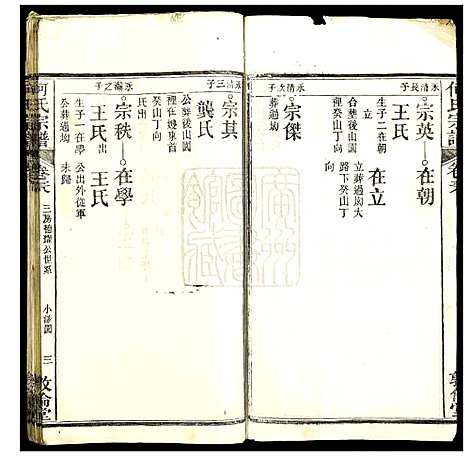 何氏宗譜
永清長子
宗英—在朝
王氏
生子二在朝
在立
合塟後山園
癸山丁向
在立
立塟過坳大
路下癸山丁
向
永清次子
宗傑
塟過坳
永清三子
宗其
公塟後山園
裡在嫂東首
癸山丁向
龔氏
氏出
永瀚之子
宗秩—在學
王氏出
生子一在學
公塟過坳
王氏
公出外從軍
未歸
何氏宗譜
三房德耀公世系
小
三
敦倫堂
敦倫堂